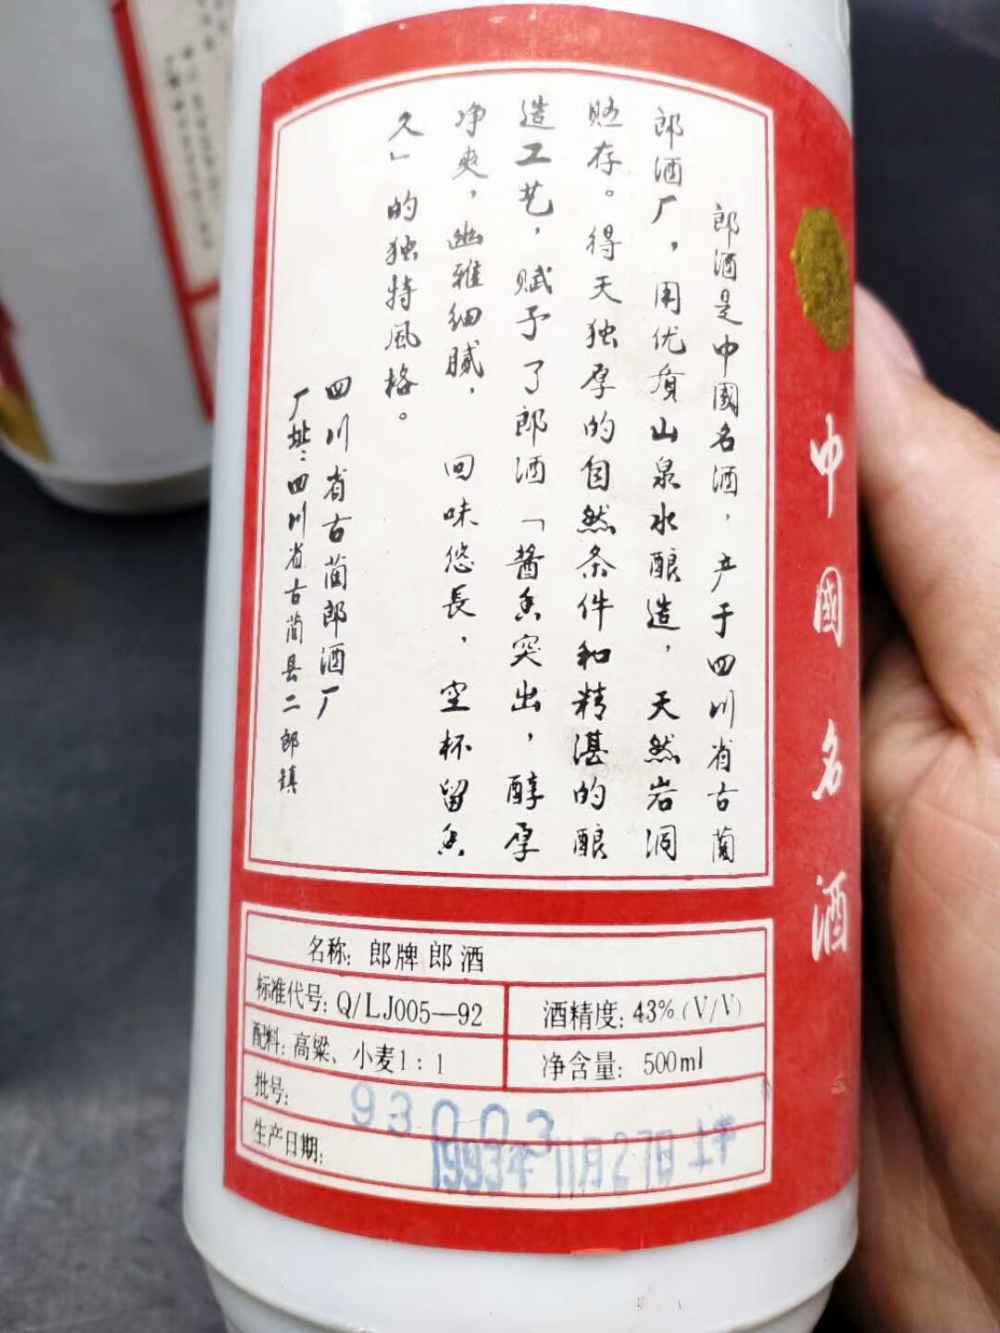 郎酒是中國名酒，产于四川省古蔺
郎酒厂，用优质山泉水酿造，天然岩洞
贮存。得天独厚的自然条件和精湛的酿
造工艺，赋予了郎酒「酱香突出，醇厚
净爽，幽雅细腻，回味悠長，空杯留香
久」的独特風格。
四川省古蔺郎酒厂
厂址：四川省古蔺县二郎镇
中國名酒
名称：郎牌郎酒
标准代号：Q/LJ005—92
酒精度：43%(V/V)
配料：高粱、小麦1：1
净含量：500ml
批号：93003
生产日期：1993年11月27日